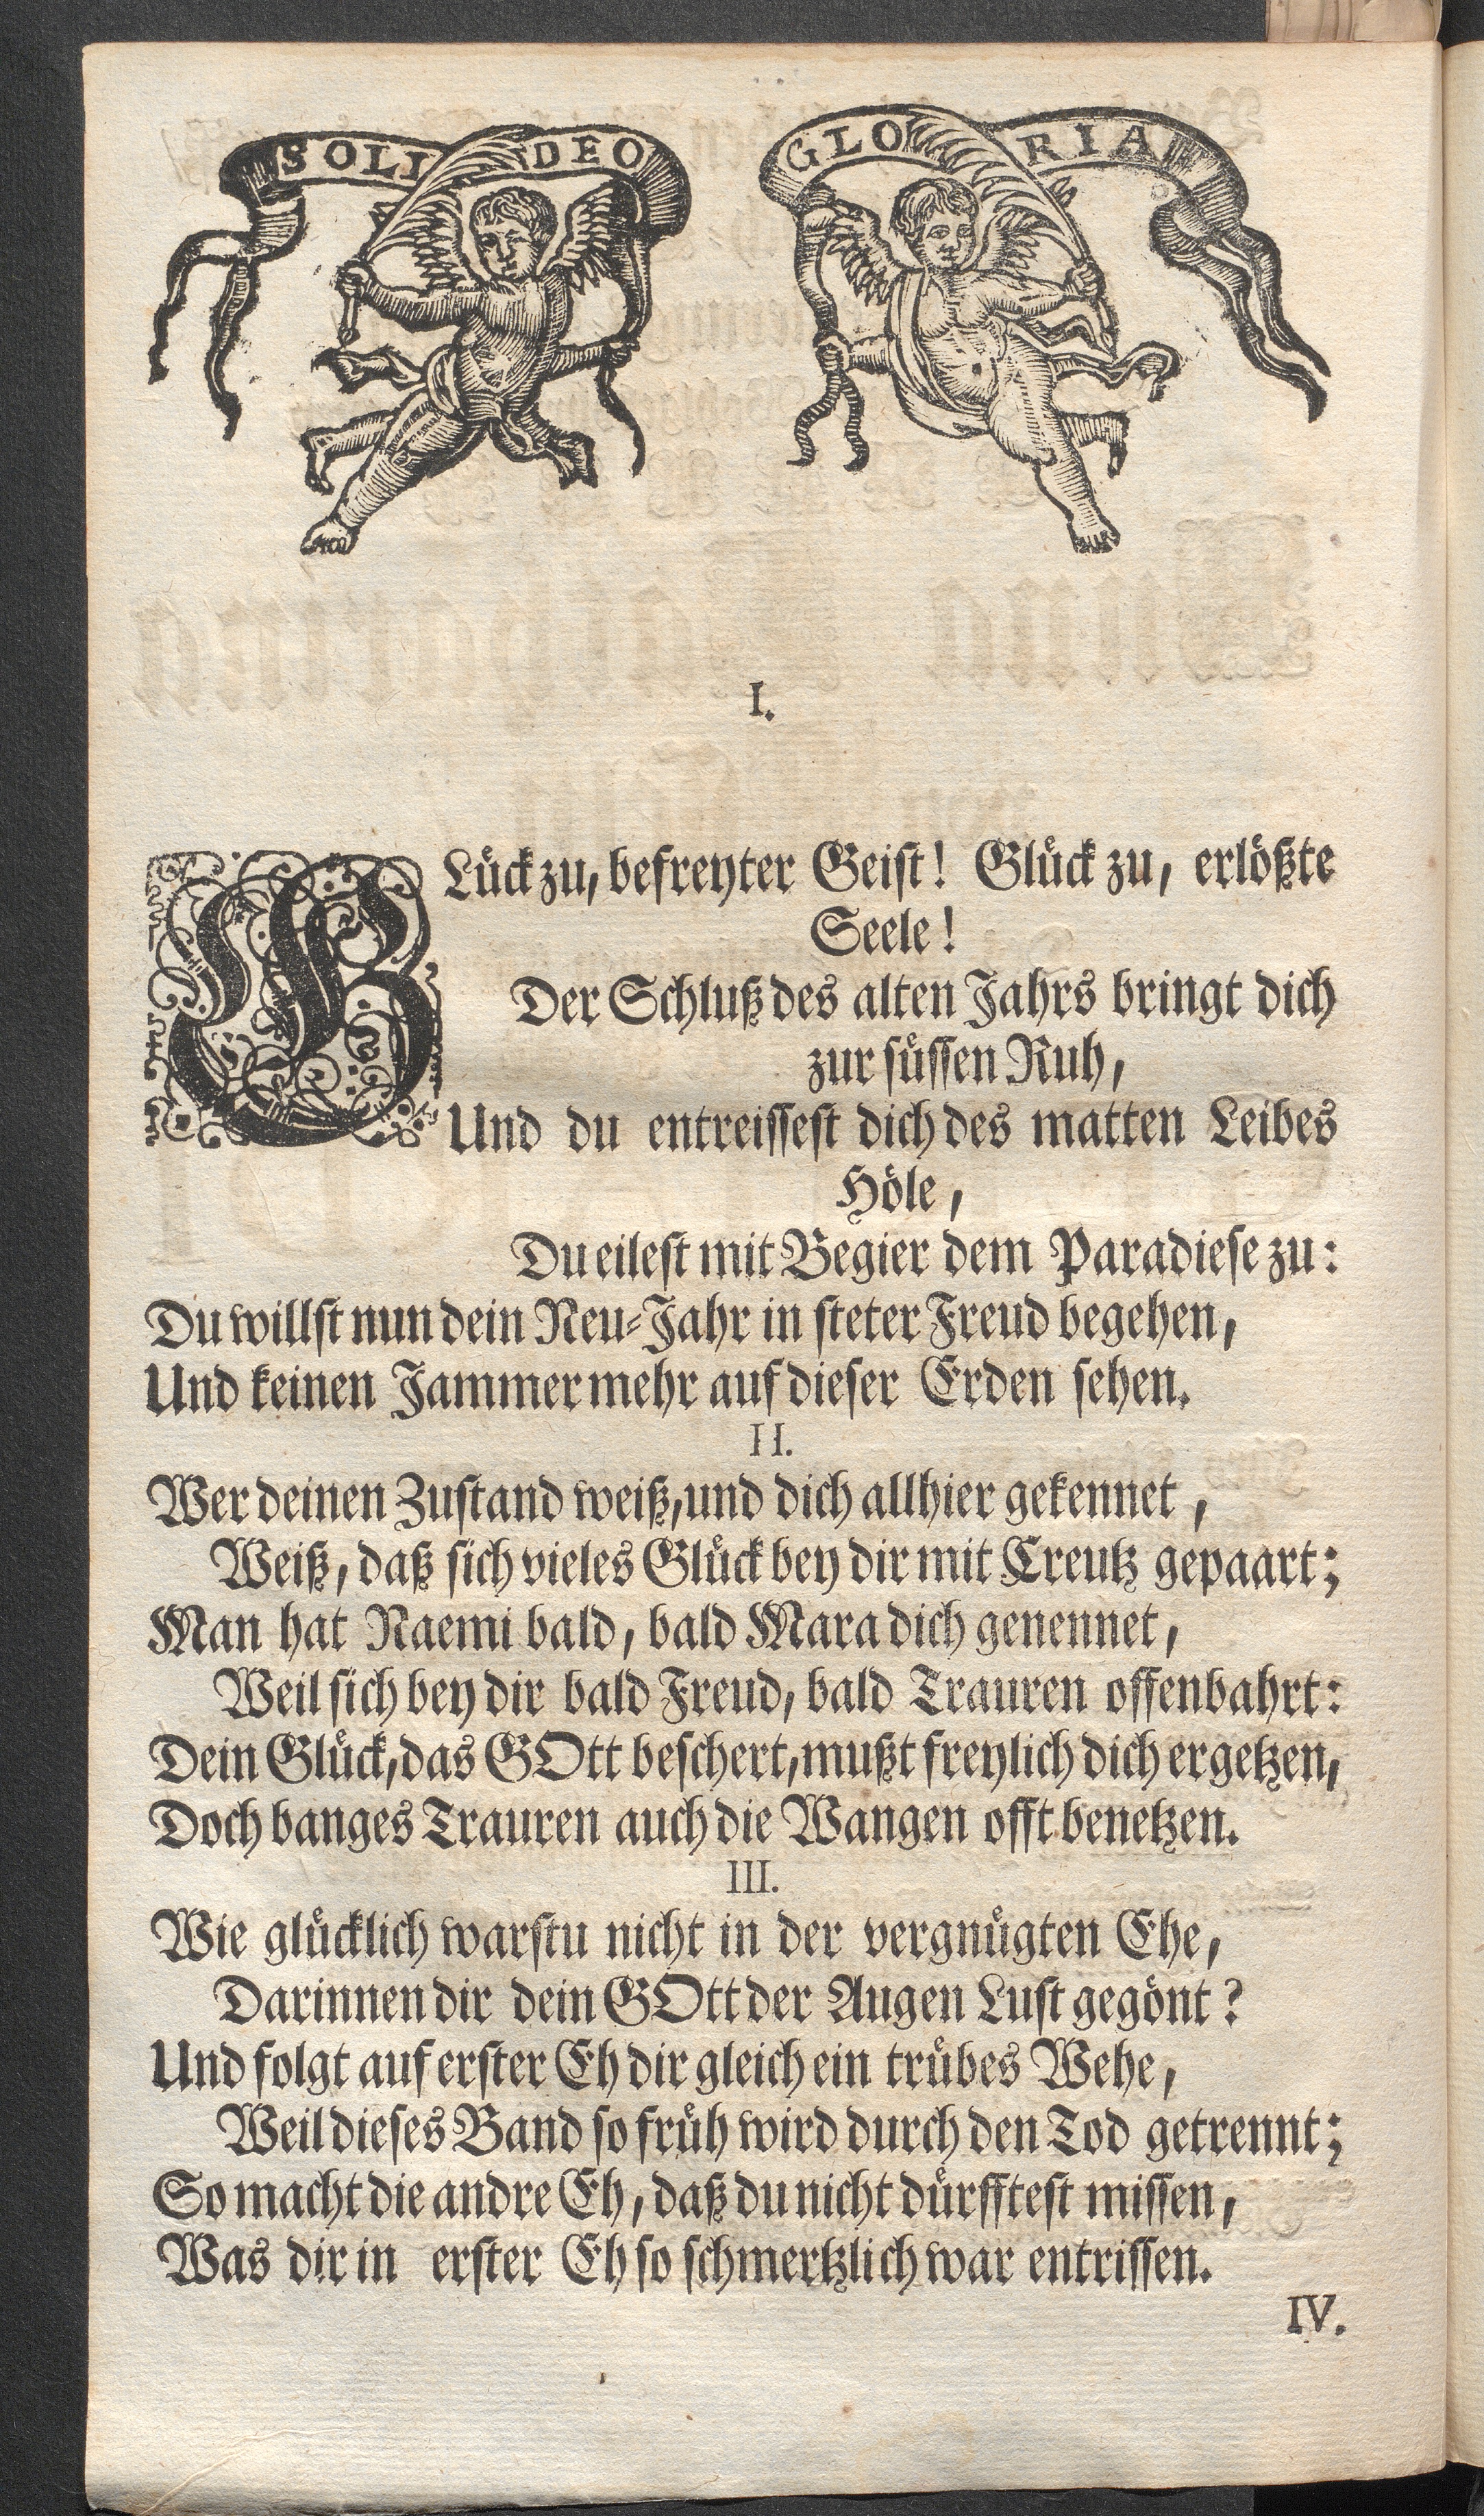 SOLI DEO GLORIA
I.
GLück zu, befreyter Geist! Glück zu, erlößte
Seele!
Der Schluß des alten Jahrs bringt dich
zur süssen Ruh,
Und du entreissest dich des matten Leibes
Höle,
Du eilest mit Begier dem Paradiese zu:
Du willst nun dein Neu-Jahr in steter Freud begehen,
Und keinen Jammer mehr auf dieser Erden sehen.
II.
Wer deinen Zustand weiß, und dich allhier gekennet,
Weiß, daß sich vieles Glück bey dir mit Creutz gepaart;
Man hat Naemi bald, bald Mara dich genennet,
Weil sich bey dir bald Freud, bald Trauren offenbahrt:
Dein Glück, das GOtt beschert, mußt freylich dich ergetzen,
Doch banges Trauren auch die Wangen offt benetzen.
III.
Wie glücklich warstu nicht in der vergnügten Ehe,
Darinnen dir dein GOtt der Augen Lust gegönt?
Und folgt auf erster Eh dir gleich ein trübes Wehe,
Weil dieses Band so früh wird durch den Tod getrennt;
So macht die andre Eh, daß du nicht dürfftest missen,
Was dir in erster Eh so schmertzlich war entrissen.
IV.